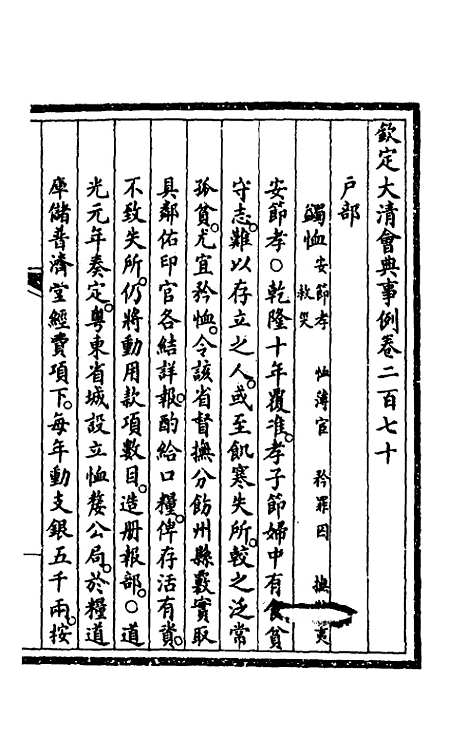 欽定大清會典事例卷二百七十
戶部
蠲恤安節孝 恤薄宦 矜罪囚 撫 夷 救災
安節孝○乾隆十年覆准。孝子節婦中有 貧
守志。難以存立之人。或至飢寒失所。較之泛常
孤貧。尤宜矜恤。令該省督撫分飭州縣覈實取
具鄰佑印官各結詳報。酌給口糧。俾存活有資。
不致失所。仍將動用款項數目。造册報部。○道
光元年奏定。粵東省城設立恤嫠公局。於糧道
庫儲普濟堂經費項下。每年動支銀五千兩。按